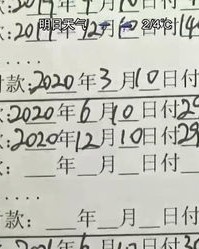 :2019年9月10日付
明日天气 2/4℃
:2019年12月10日付14
付款:2020年3月10日付
:2020年6月10日付29
:2020年12月10日付29
:___年__月__日付
___年__月__日付
款:___年__月__日付
年6月10日付30